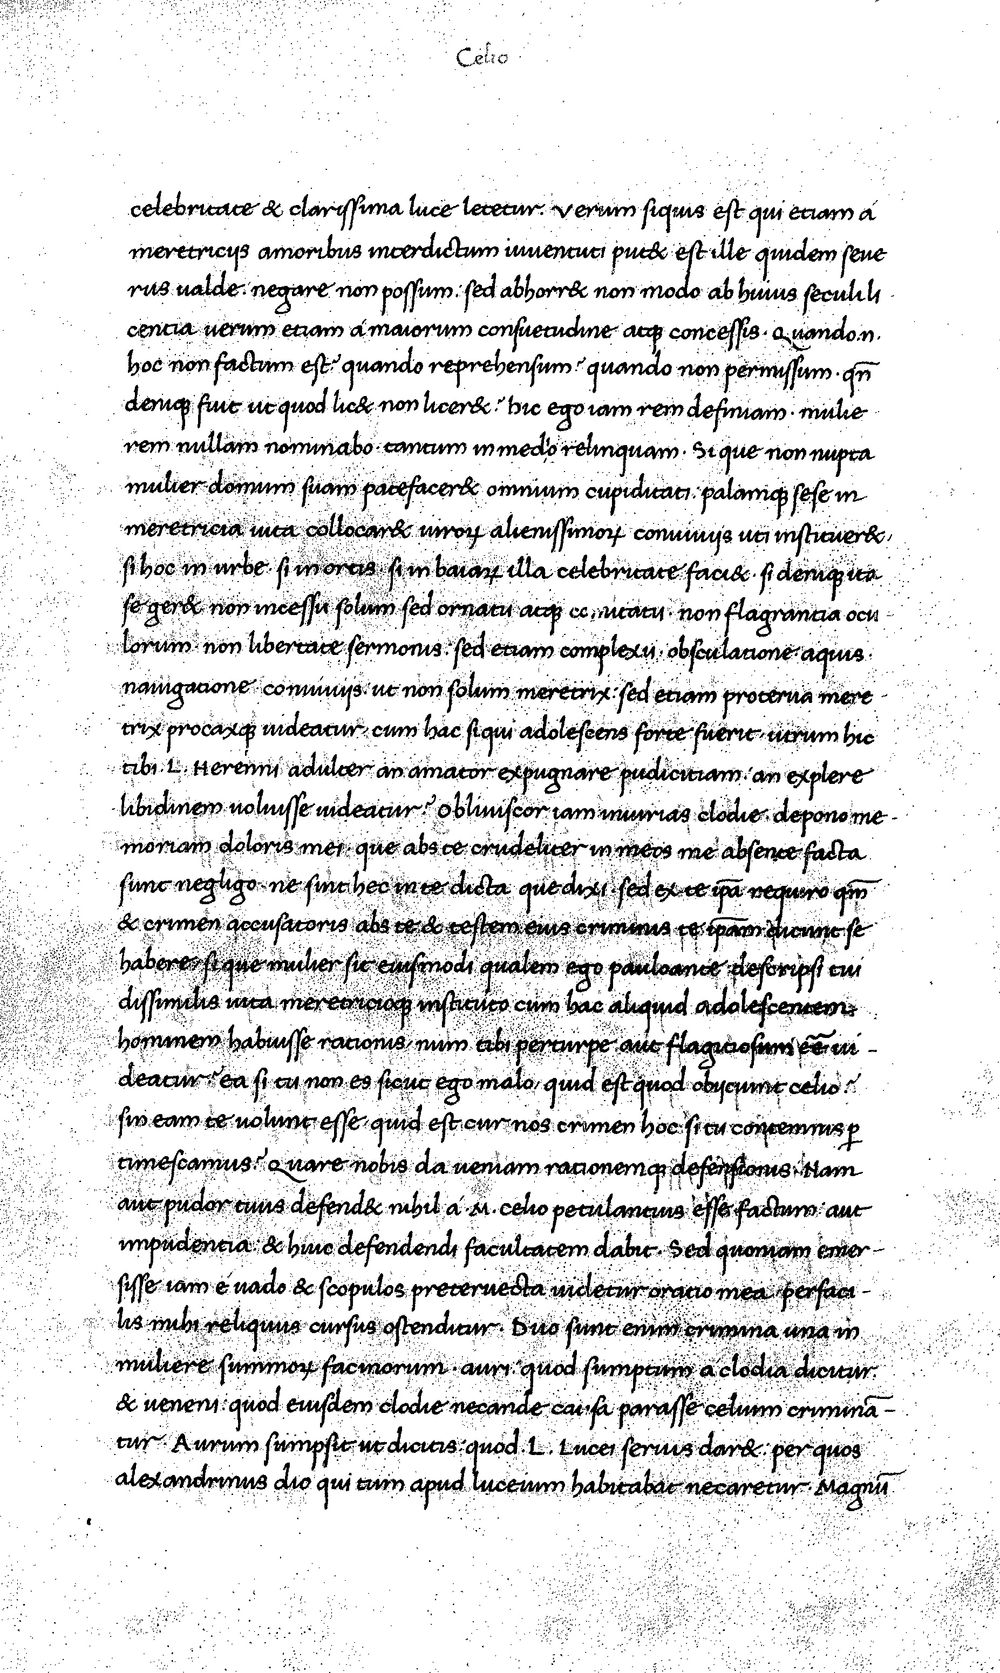 Celio
celebritate & clarissima luce letetur. Verum siquis est qui etiam á
meretricijs amoribus interdictum iuventuti put& est ille quidem seue
rus ualde. negare non possum. sed abhorr& non modo ab huius seculi li
centia verum etiam á maiorum consuetudine atq; concessis. Quando.n.
hoc non factum est? quando reprehensum? quando non permissum. qn̄
deniq; fuit ut quod lic& non licer&? hic ego iam rem definiam. mulie
rem nullam nominabo tantum in medio relinquam. Si que non nupta
mulier domum suam patefacer& omnium cupiditati. palamq; sese in
meretricia uita collocar& uiroꝝ alienissimoꝝ conuiuijs uti instituer&,
si hoc in urbe. si in ortis. si in baiaꝝ illa celebritate faci&. si deniq; ita
se ger& non incessu solum sed ornatu atq; comitatu. non flagrantia ocu
lorum. non libertate sermonis. sed etiam complexu. obsculatione. aquis.
nauigatione conuiuijs. ut non solum meretrix. sed etiam proterua mere -
trix procaxq; uideatur. cum hac si qui adolescens forte fuerit. utrum hic
tibi. L. Herenni adulter an amator expugnare pudicitiam. an explere
libidinem uoluisse uideatur? Obliuiscor iam iniurias clodie. depono me -
moriam doloris mei. que abs te crudeliter in meos me absente facta
sunt negligo. ne sint hec in te dicta que dixi. sed ex te ip̄a requiro qm̄
& crimen accusatoris abs te & testem eius criminis te ip̄am dicunt se
habere. si que mulier sit eiusmodi qualem ego pauloante descripsi tui
dissimilis uita meretricioq; instituto cum hac aliquid adolescentem.
hominem habuisse rationis. num tibi perturpe aut flagitiosum ēē ui -
deatur? ea si tu non es sicut ego malo. quid est quod obijciunt celio?
sin eam te uolunt esse. quid est cur nos crimen hoc si tu contemnis ꝑ
timescamus? Quare nobis da ueniam rationemq; defensionis. Nam
aut pudor tuus defend& nihil á. M. celio petulantius esse factum. aut
impudentia. & huic defendendi facultatem dabit. Sed quoniam emer -
sisse iam é uado & scopulos preteruecta uidetur oratio mea. perfaci -
lis mihi reliquus cursus ostenditur. Duo sunt enim crimina una in
muliere summoꝝ facinorum. auri. quod sumptum a clodia dicitur.
& ueneni. quod eiusdem clodie necande causa parasse celium criminā -
tur. Aurum sumpsit ut dicitis. quod. L. Lucei seruis dar&. per quos
alexandrinus dio qui tum apud luceium habitabat necaretur. Magnū